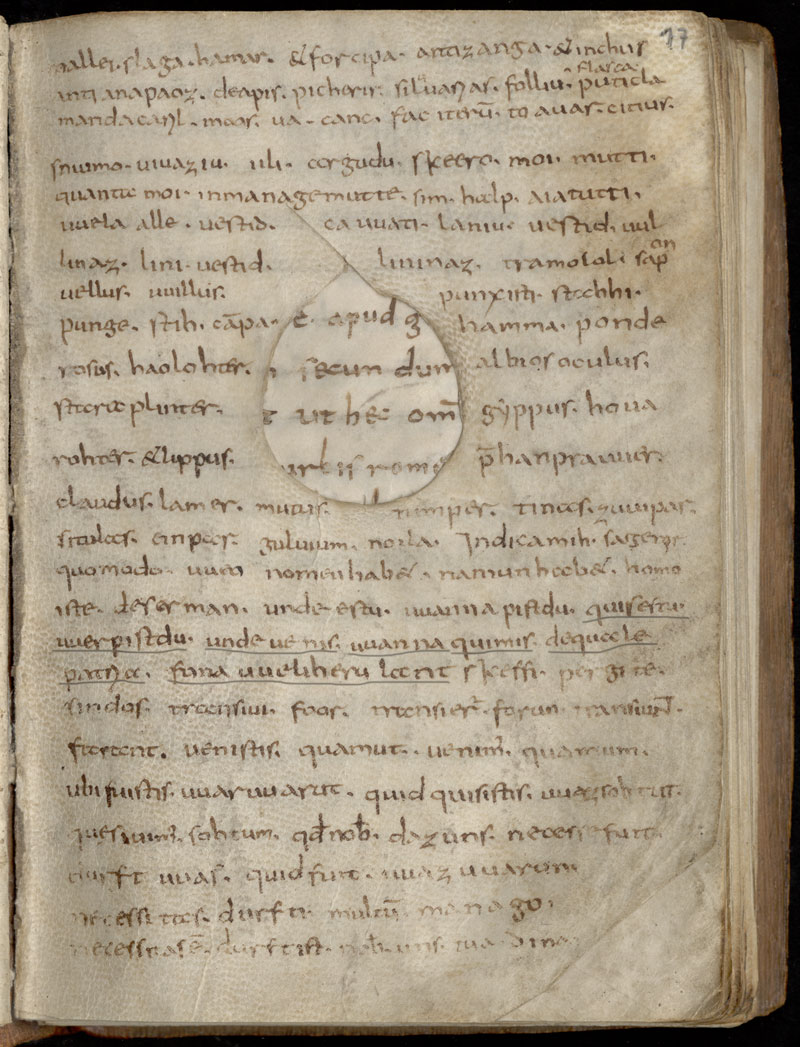 mallei. slaga. hamar. & forcipa. antizanga. & inchus 17
flasca
anti anapaoz. deapis. picherir. siluarias. folliu. puticla
mandacaril. moos. ua. canc. fac iterū. to auar. citius.
sniumo. uiuaziu. iili. argudu. skeero. moi. mutti.
quanta moi. in managemutte. sim. halp. aiatutti.
uuela alle. uestid. cauuati. laniu. uestid. uul
an
linaz. lini. uestid. lininaz. tramolol. sap
uellus. uuillus. punxisti. stahhi.
punge. stih. cāpa. apud hamma. ponde
rosus. haolohter. secundum albiosoculus.
staraplinter. ut hęc om̄ gyppus. houa
rohter. & lippus. urbis rome p̄hanprauuer.
claudus. lamer. mutus. tumper. tinas. zuuipar.
situlas. einpar. guluium. noila. Indicamih. sagemir.
quomodo. uueo nomen hab&. namun hab&. homo
iste. deser man. unde estu. uuanna pistdu. quisestu.
uuer pistdu. unde uenis. uuanna quimis. dequale
patria. fona uueliheru lant skeffi. pergite.
sindos. transiui. foor. transier̄. forun. transeunt.
farant. uenistis. quamut. uenim̄. quamum.
ubi fuistis. uuar uuarut. quid quisistis. uuaz sohtut.
quesiuim̄. sohtum. qd nob. daz uns. necesse fuit.
durft uuas. quid fuit. uuaz uuarun
necessitas. durfti. multū. manago.
necessitas ē. durft ist. nob. uns. tua. dina.